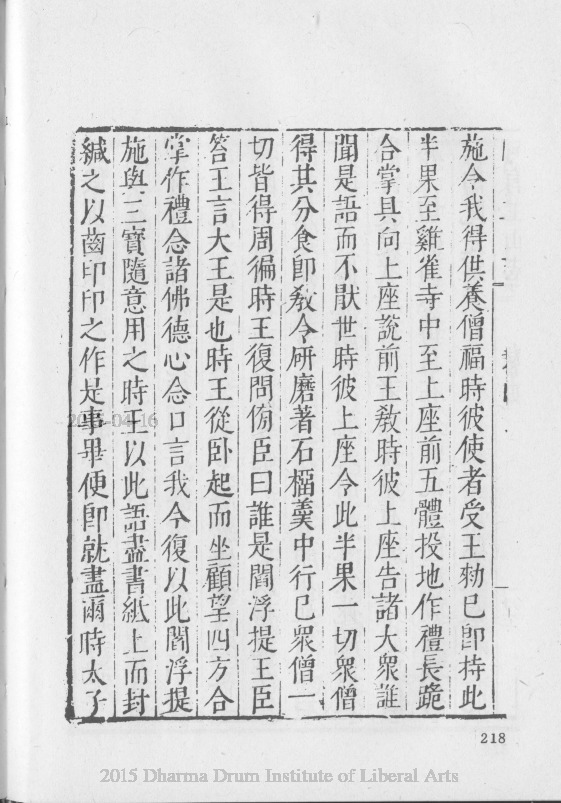 施令我得供養僧福時彼使者受王勑已卽持此
半果至雞雀寺中至上座前五體投地作禮長跪
合掌具向上座說前王敎時彼上座告諸大衆誰
聞是語而不猒世時彼上座令此半果一切衆僧
得其分食卽敎令硏磨著石榴羹中行已衆僧一
切皆得周徧時王復問傍臣曰誰是閻浮提王臣
答王言大王是也時王從卧起而坐顧望四方合
掌作禮念諸佛德心念口言我今復以此閻浮提
施與三寶隨意用之時王以此語盡書紙上而封
緘之以齒印印之作是事畢便卽就盡爾時太子
218
2015 Dharma Drum Institute of Liberal Arts